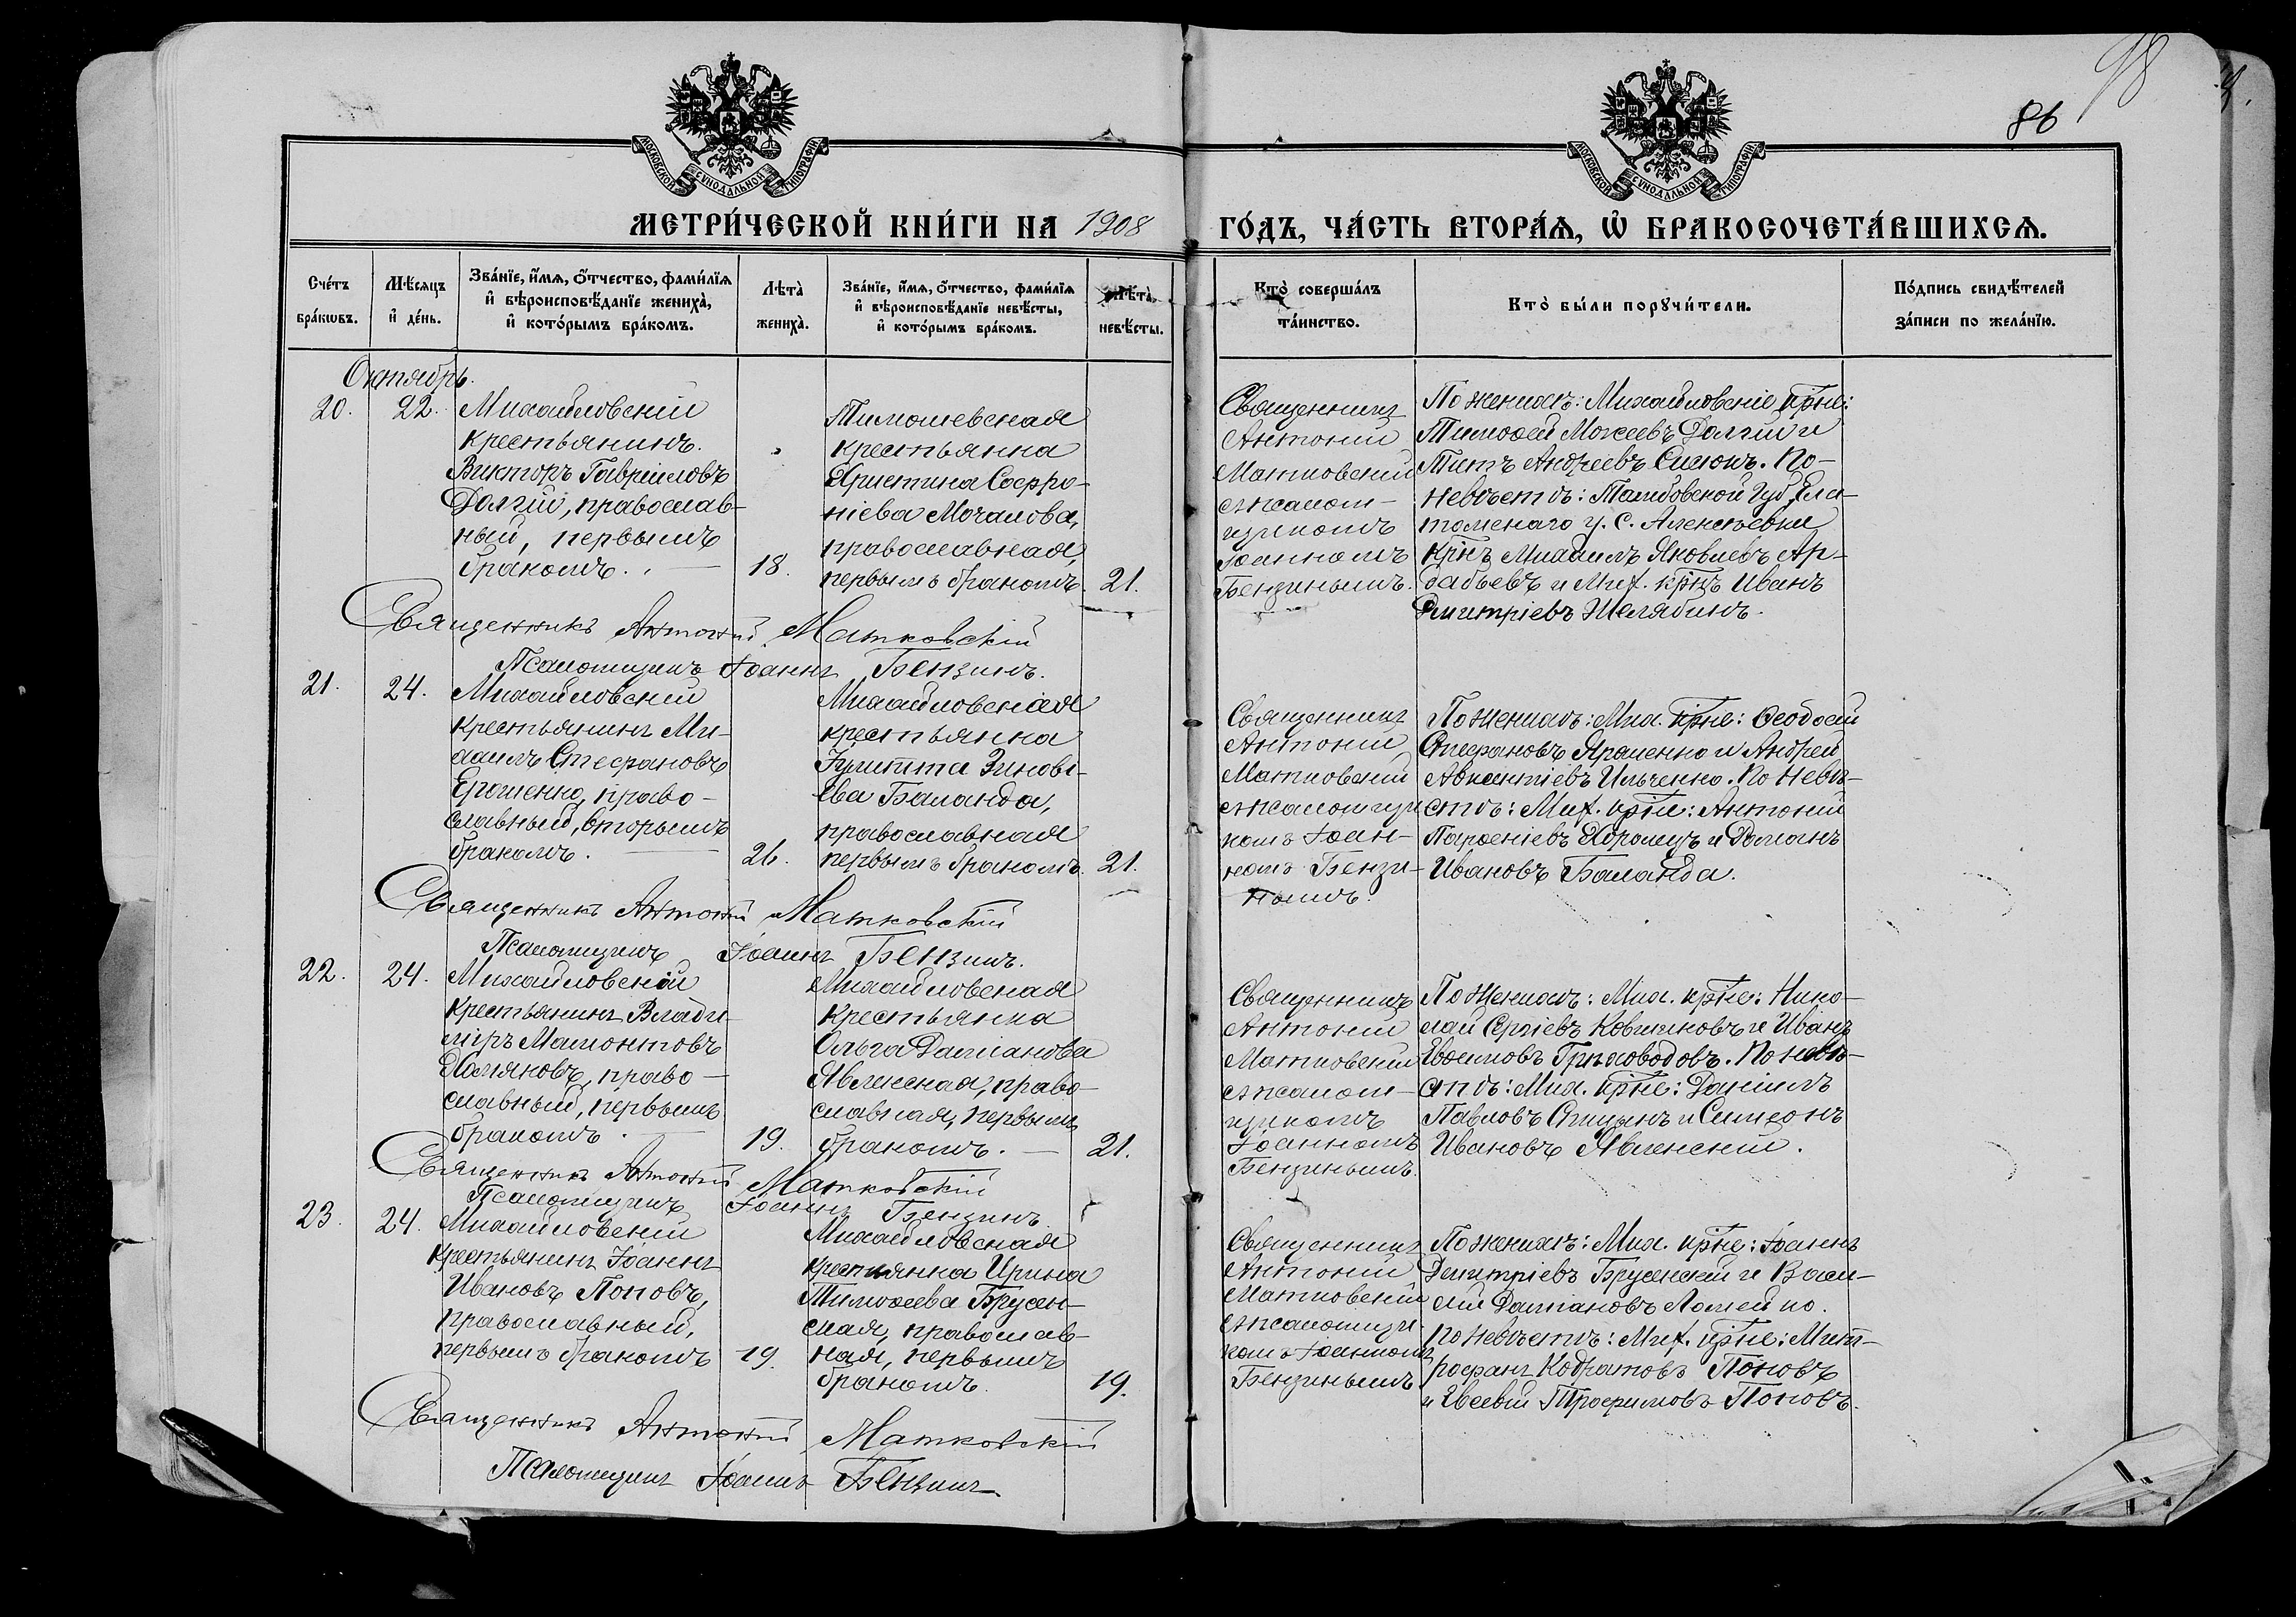 98
86
МОСКОВСКОЙ СѴНОДАЛЬНОЙ ТИПОГРАФІИ
МОСКОВСКОЙ СѴНОДАЛЬНОЙ ТИПОГРАФІИ
МЕТРИ́ЧЕСКОЙ КНИ́ГИ НА 1908 ГО́ДЪ, ЧА́СТЬ ВТОРА́Ѧ, Ѽ БРАКОСОЧЕТА́ВШИХСѦ.
Сче́тъ бра́кѡвъ.
Мѣ́сяцъ и҆ де́нь.
Зва́нїе, и҆́мѧ, ѻ҆́тчество, фами́лїѧ
и҆ вѣроисповѣ́данїе жениха̀,
и҆ кото́рымъ бра́комъ.
Лѣта̀ жениха̀.
Зва́нїе, и҆́мѧ, ѻ҆́тчество, фами́лїѧ
и҆ вѣроисповѣ́данїе невѣ́сты,
и҆ кото́рымъ бра́комъ.
Лѣта̀ невѣ́сты.
Кто̀ соверша́лъ та́инство.
Кто̀ бы́ли порꙋчи́тели.
По́дпись свидѣ́телей за́писи по жела́нїю.
Октябрь.
20.
22.
Михайловскій
крестьянинъ.
Викторъ Гавріиловъ
Долгій, православ-
ный, первымъ
бракомъ.
18.
Тимошевская
крестьянка
Христина Софро-
ніева Мочалова,
православная,
первымъ бракомъ.
21.
Священникъ
Антоній
Матковскій
съ псалом-
щикомъ
Іоанномъ
Бензинымъ.
По женихѣ: Михайловскіе крне:
Тимофей Моисеевъ Долгій и
Титъ Андреевъ Сисюкъ. По-
невѣстѣ: Тамбовской Губ, Ела-
томскаго у. С. Алексѣевки
крнъ Михаилъ Яковлевъ Ар-
дабьевъ и Мих. крнъ Иванъ
Димитріевъ Желябинъ.
Священникъ Антоній Матковскій
Псаломщикъ Іоаннъ Бензинъ.
21.
24.
Михайловскій
крестьянинъ Ми-
хаилъ Стефановъ
Ерошенко, право-
славный, вторымъ
бракомъ.
26.
Михайловская
крестьянка
Улитта Зиновь-
ева Баланда,
православная
первымъ бракомъ.
21.
Священникъ
Антоній
Матковскій
съ псаломщи
комъ Іоан-
номъ Бензи-
нымъ.
По женихѣ: Мих. крне: Ѳеодосій
Стефановъ Ярошенко и Андрей
Авксентіевъ Ильченко. По невѣ-
стѣ: Мих. крне: Антоній
Парѳеніевъ Хоролецъ и Даміанъ
Ивановъ Баланда.
Священникъ Антоній Матковскій
Псаломщикъ Іоаннъ Бензинъ.
22.
24.
Михайловскій
крестьянинъ Влади-
міръ Мамонтовъ
Хамяновъ, право-
славный, первымъ
бракомъ.
19.
Михайловская
крестьянка
Ольга Даміанова
Явленская, право-
славная, первымъ
бракомъ.
21.
Священникъ
Антоній
Матковскій
съ псалом-
щикомъ
Іоанномъ
Бензинымъ.
По женихѣ: Мих. крне: Нико-
лай Сергіевъ Ковшиковъ и Иванъ
Евѳимовъ Грѣховодовъ. По невѣ-
стѣ: Мих. крне: Даніилъ
Павловъ Спицынъ и Симеонъ
Ивановъ Явленскій.
Священникъ Антоній Матковскій
Псаломщикъ Іоаннъ Бензинъ
23.
24.
Михайловскій
крестьянинъ Іоаннъ
Ивановъ Поповъ,
православный,
первымъ бракомъ
19.
Михайловская
крестьянка Ирина
Тимоѳеева Брусен-
ская, православ-
ная, первымъ
бракомъ.
19.
Священникъ
Антоній
Матковскій
съ псаломщи-
комъ Іоанномъ
Бензинымъ
По женихѣ: Мих. крне: Іоаннъ
Димитріевъ Брусенскій и Васи-
лій Даміановъ Ломейко.
По невѣстѣ: Мих. крне: Мит-
рофанъ Кодратовъ Поповъ
и Евсевій Трофимовъ Поповъ.
Священникъ Антоній Матковскій
Псаломщикъ Іоаннъ Бензинъ